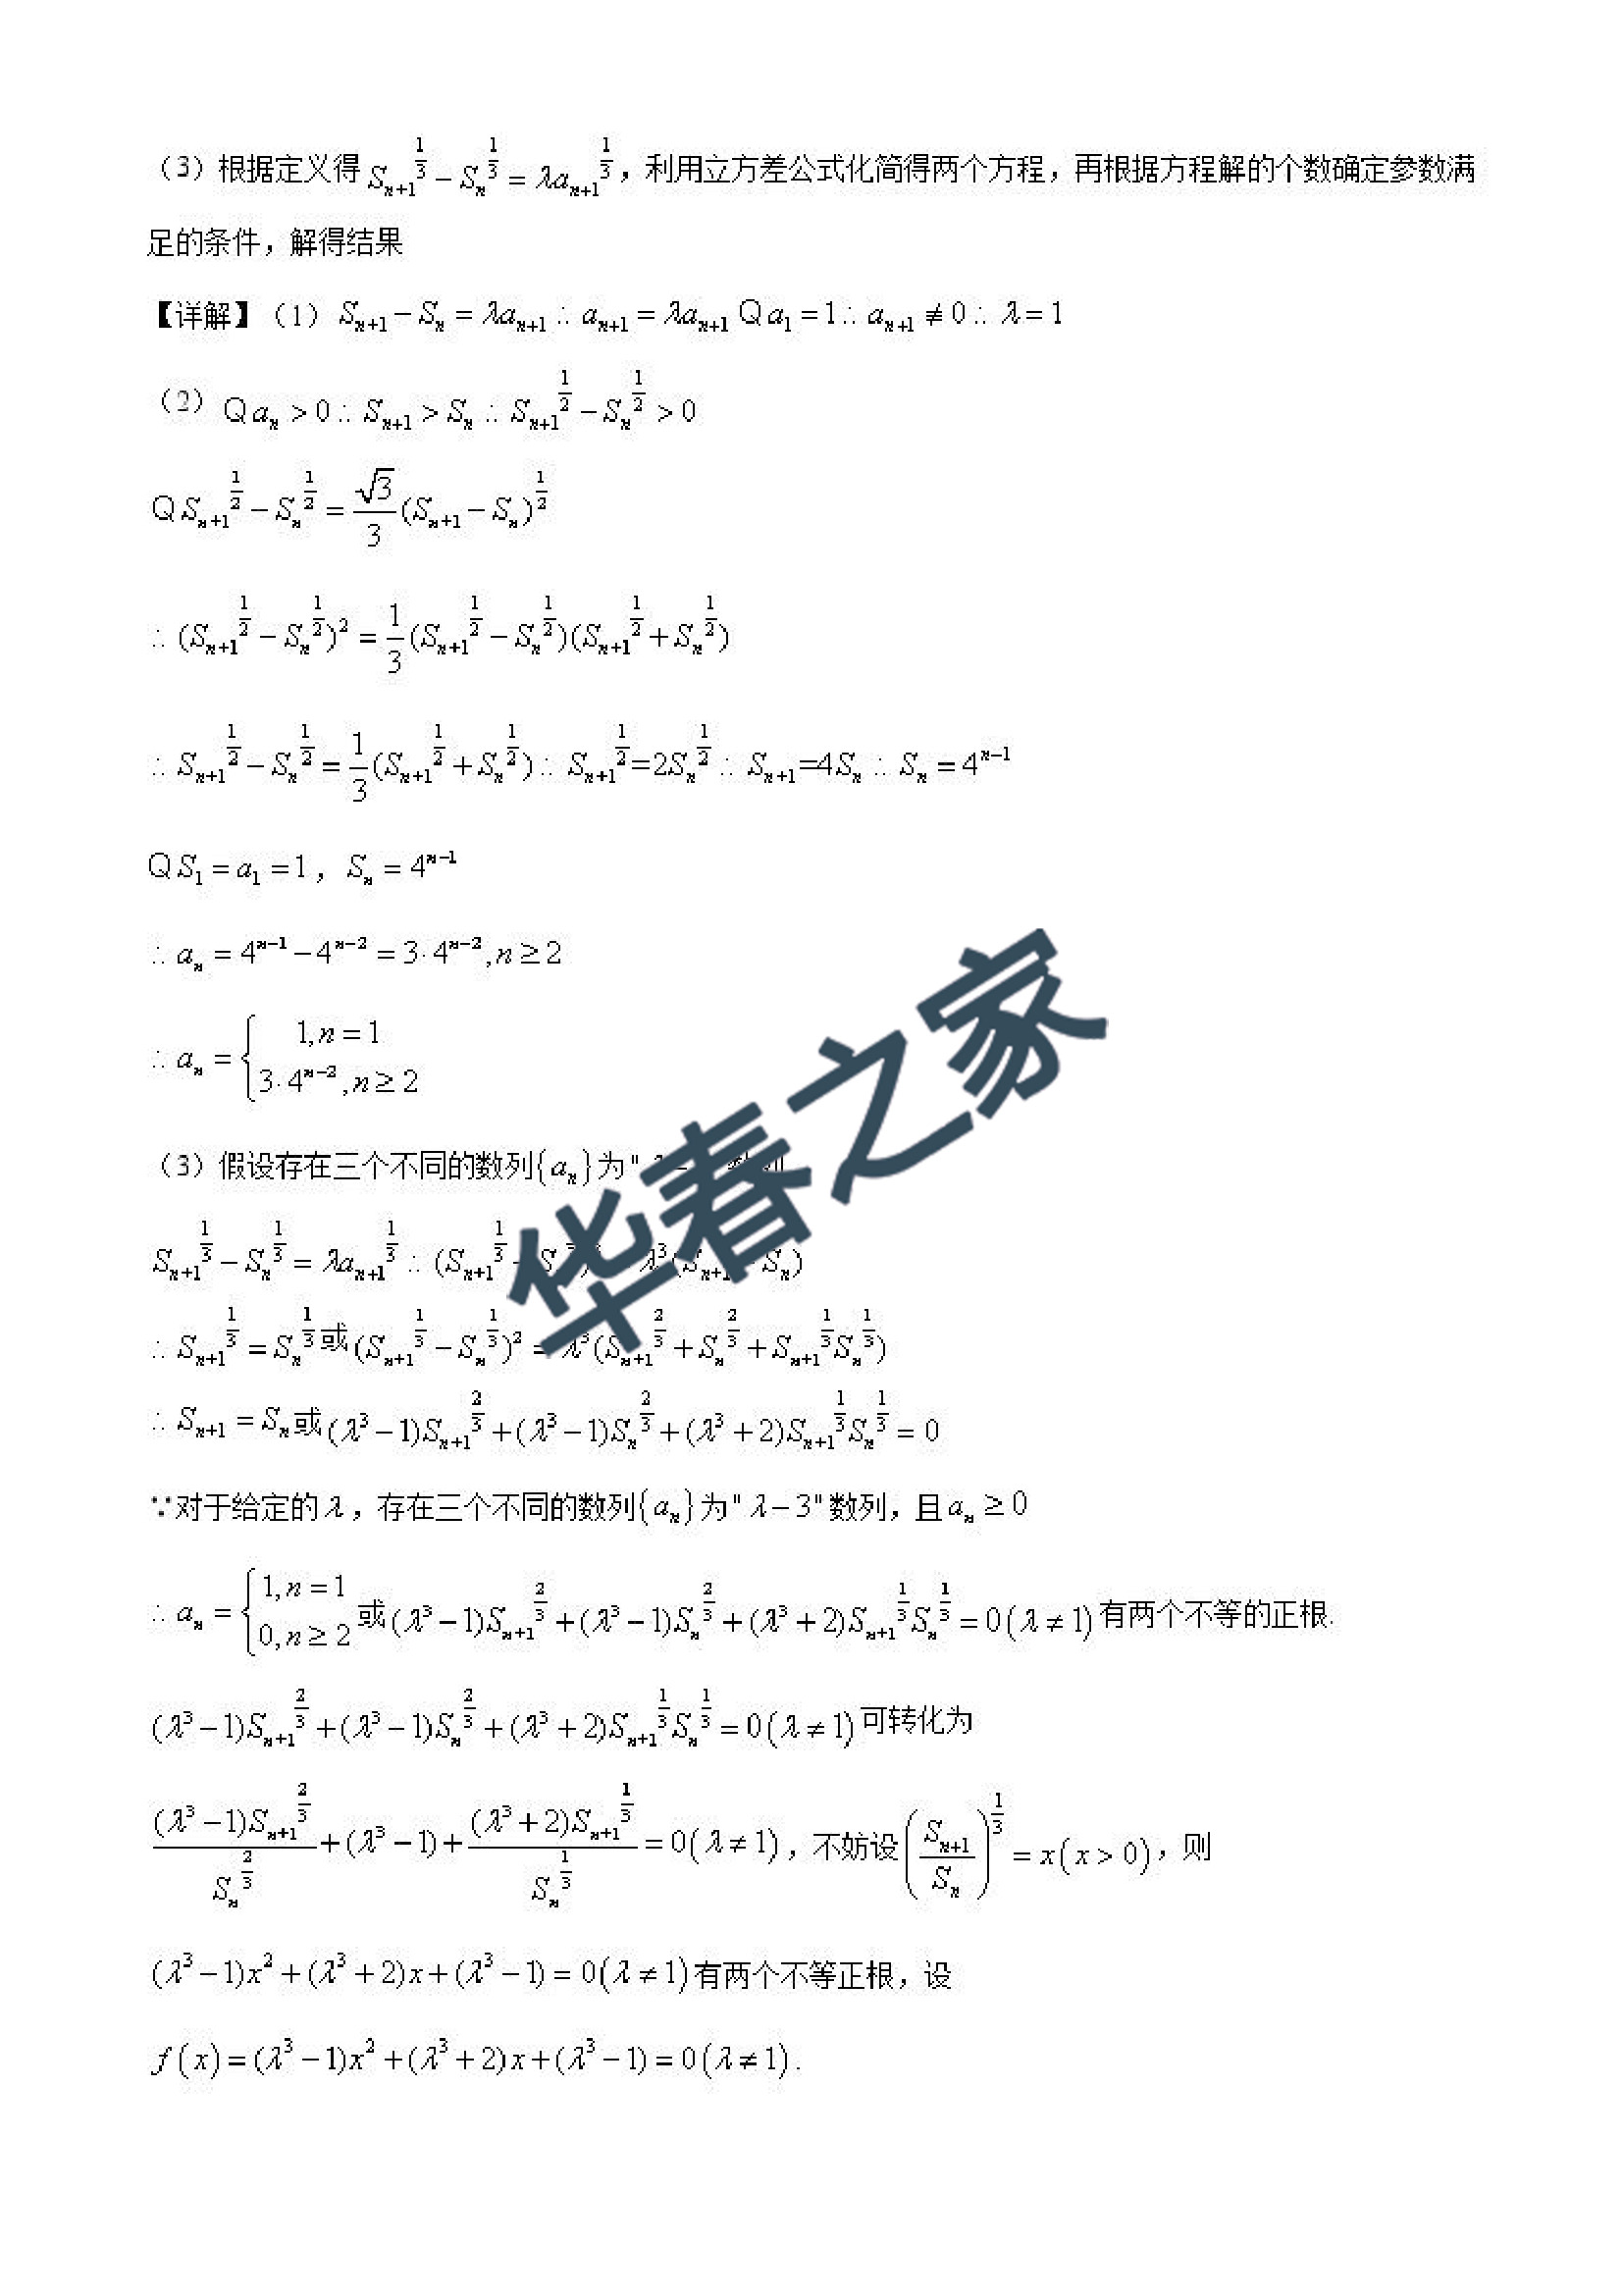 （3）根据定义得 $S_{n+1}^{\frac{1}{3}}-S_n^{\frac{1}{3}}=\lambda a_{n+1}^{\frac{1}{3}}$，利用立方差公式化简得两个方程，再根据方程解的个数确定参数满
足的条件，解得结果
【详解】（1） $S_{n+1}-S_n=\lambda a_{n+1}\therefore a_{n+1}=\lambda a_{n+1}$ Q $a_1=1\therefore a_{n+1}\not\equiv 0\therefore \lambda=1$
（2） Q $a_n>0\therefore S_{n+1}>S_n\therefore S_{n+1}^{\frac{1}{2}}-S_n^{\frac{1}{2}}>0$
Q $S_{n+1}^{\frac{1}{2}}-S_n^{\frac{1}{2}}=\frac{\sqrt{3}}{3}(S_{n+1}-S_n)^{\frac{1}{2}}$
$\therefore (S_{n+1}^{\frac{1}{2}}-S_n^{\frac{1}{2}})^2=\frac{1}{3}(S_{n+1}^{\frac{1}{2}}-S_n^{\frac{1}{2}})(S_{n+1}^{\frac{1}{2}}+S_n^{\frac{1}{2}})$
$\therefore S_{n+1}^{\frac{1}{2}}-S_n^{\frac{1}{2}}=\frac{1}{3}(S_{n+1}^{\frac{1}{2}}+S_n^{\frac{1}{2}})\therefore S_{n+1}^{\frac{1}{2}}=2S_n^{\frac{1}{2}}\therefore S_{n+1}=4S_n\therefore S_n=4^{n-1}$
Q $S_1=a_1=1$， $S_n=4^{n-1}$
$\therefore a_n=4^{n-1}-4^{n-2}=3\cdot 4^{n-2},n\geq 2$
$\therefore a_n=\begin{cases}1,n=1\\3\cdot 4^{n-2},n\geq 2\end{cases}$
（3）假设存在三个不同的数列$\{a_n\}$为"
$S_{n+1}^{\frac{1}{3}}-S_n^{\frac{1}{3}}=\lambda a_{n+1}^{\frac{1}{3}}\therefore (S_{n+1}^{\frac{1}{3}}-S_n^{\frac{1}{3}})^3=\lambda^3(S_{n+1}-S_n)$
$\therefore S_{n+1}^{\frac{1}{3}}=S_n^{\frac{1}{3}}$或$(S_{n+1}^{\frac{1}{3}}-S_n^{\frac{1}{3}})^2=\lambda^3(S_{n+1}^{\frac{2}{3}}+S_n^{\frac{2}{3}}+S_{n+1}^{\frac{1}{3}}S_n^{\frac{1}{3}})$
$\therefore S_{n+1}=S_n$或$(\lambda^3-1)S_{n+1}^{\frac{2}{3}}+(\lambda^3-1)S_n^{\frac{2}{3}}+(\lambda^3+2)S_{n+1}^{\frac{1}{3}}S_n^{\frac{1}{3}}=0$
∵对于给定的$\lambda$，存在三个不同的数列$\{a_n\}$为"$\lambda-3$"数列，且$a_n\geq 0$
$\therefore a_n=\begin{cases}1,n=1\\0,n\geq 2\end{cases}$或$(\lambda^3-1)S_{n+1}^{\frac{2}{3}}+(\lambda^3-1)S_n^{\frac{2}{3}}+(\lambda^3+2)S_{n+1}^{\frac{1}{3}}S_n^{\frac{1}{3}}=0(\lambda\neq 1)$有两个不等的正根.
$(\lambda^3-1)S_{n+1}^{\frac{2}{3}}+(\lambda^3-1)S_n^{\frac{2}{3}}+(\lambda^3+2)S_{n+1}^{\frac{1}{3}}S_n^{\frac{1}{3}}=0(\lambda\neq 1)$可转化为
$\frac{(\lambda^3-1)S_{n+1}^{\frac{2}{3}}}{S_n^{\frac{2}{3}}}+(\lambda^3-1)+\frac{(\lambda^3+2)S_{n+1}^{\frac{1}{3}}}{S_n^{\frac{1}{3}}}=0(\lambda\neq 1)$，不妨设$\left(\frac{S_{n+1}}{S_n}\right)^{\frac{1}{3}}=x(x>0)$，则
$(\lambda^3-1)x^2+(\lambda^3+2)x+(\lambda^3-1)=0(\lambda\neq 1)$有两个不等正根，设
$f(x)=(\lambda^3-1)x^2+(\lambda^3+2)x+(\lambda^3-1)=0(\lambda\neq 1)$.
华春之家